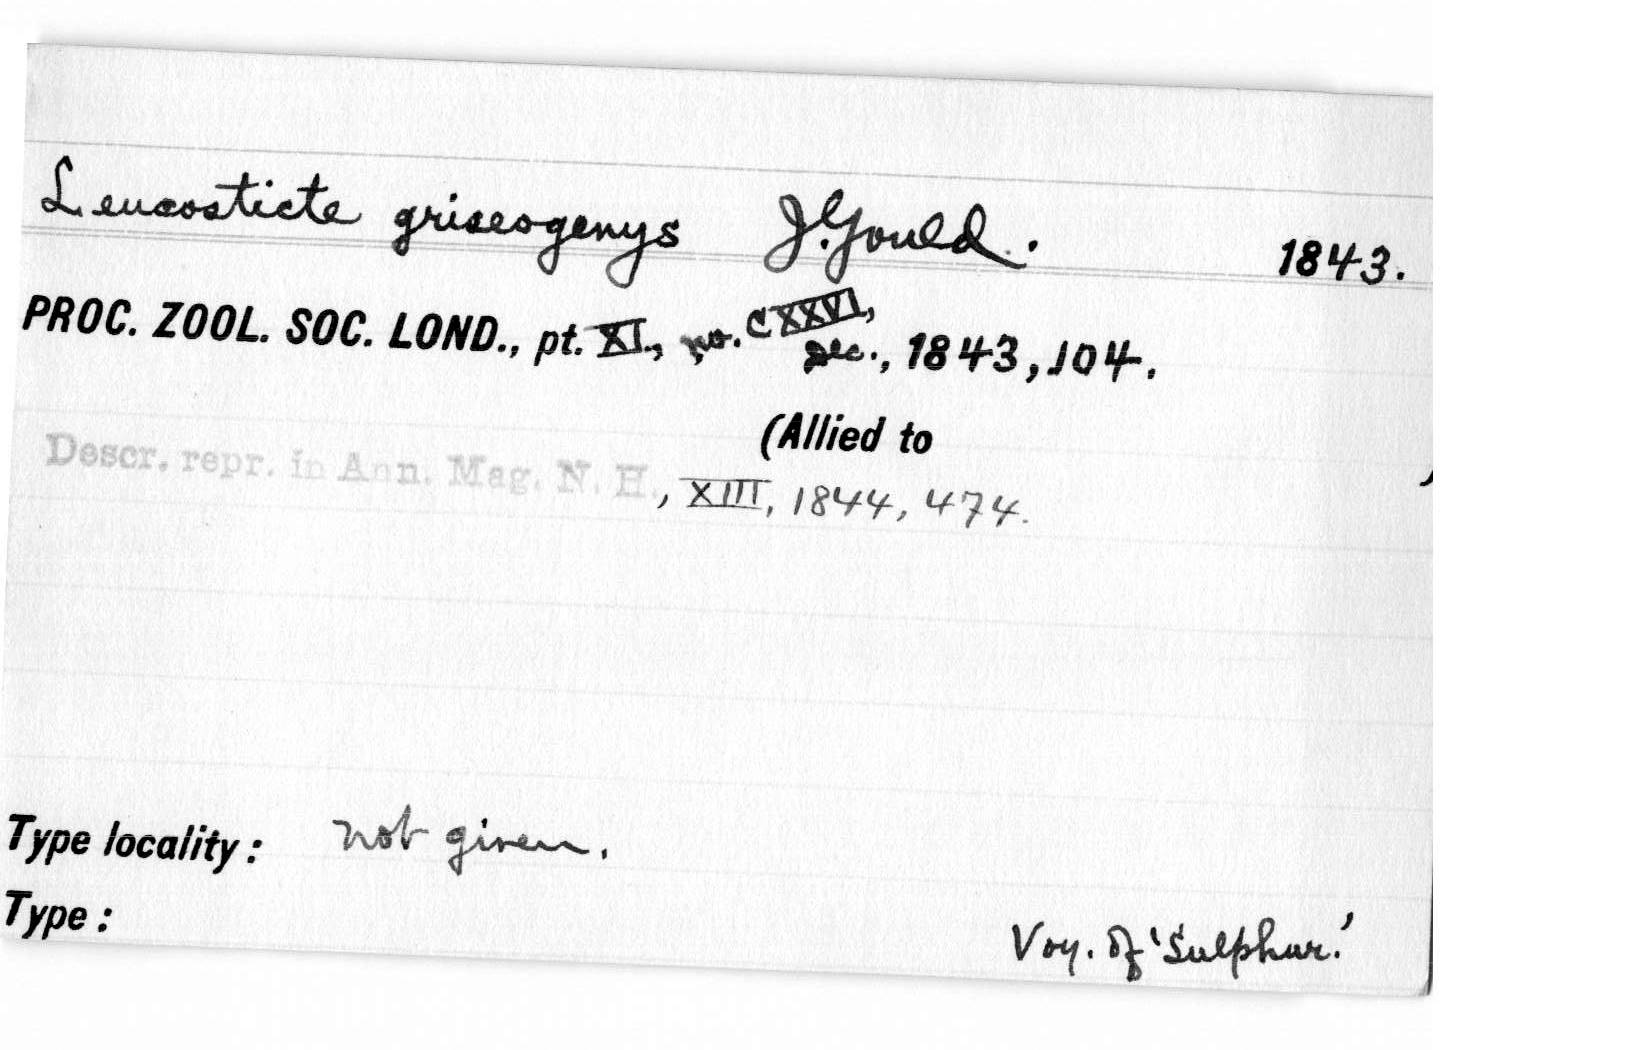 Leucosticte griseogenys J. Gould. 1843.
PROC. ZOOL. SOC. LOND., pt. XI., no. CXXVI,
Dec., 1843, 104.
(Allied to
Descr. repr. in Ann. Mag. N. H., XIII, 1844, 474.
Type locality: not given.
Type:
Voy. of 'Sulphur.'